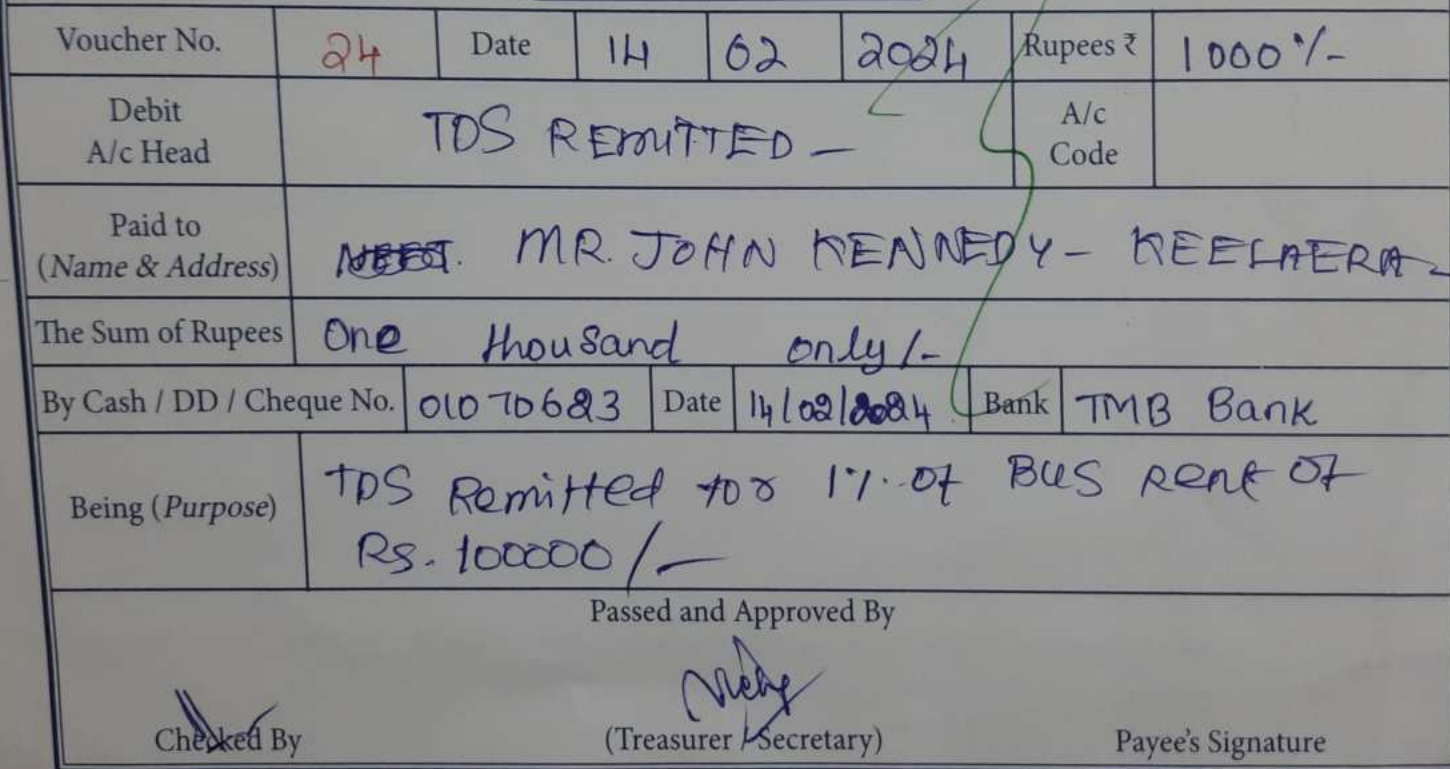 Voucher No. 24 Date 14 02 2024 Rupees ₹ 1000%-
Debit A/c Head TDS REMITTED - A/c Code
Paid to (Name & Address) MR. JOHN KENNEDY - KEELAERA -
The Sum of Rupees One thousand only/-
By Cash / DD / Cheque No. 01070623 Date 14/02/2024 Bank TMB Bank
Being (Purpose) TDS Remitted for 1% of BUS Rent Of
Rs. 100000/-
Passed and Approved By
Checked By (Treasurer / Secretary) Payee's Signature